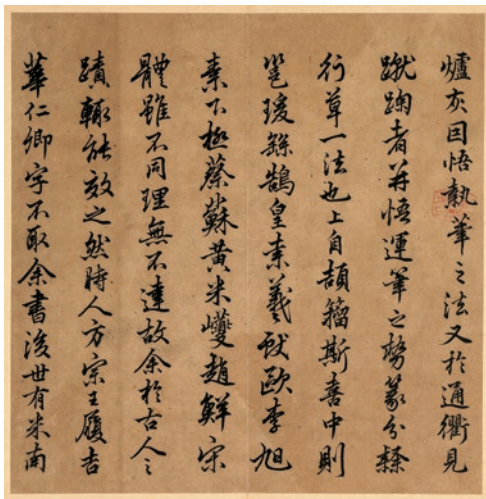 爐灰因悟執筆之法又於通衢見
蹴踘者并悟運筆之勢篆分隸
行草一法也上自頡籀斯喜中則
邕瑗繇鵠皇素羲獻歐李旭
素下極蔡蘇黃米巙趙鮮宋
體雖不同理無不達故余於古人之
蹟輒能效之然時人方宗王履吉
華仁卿字不取余書後世有米南